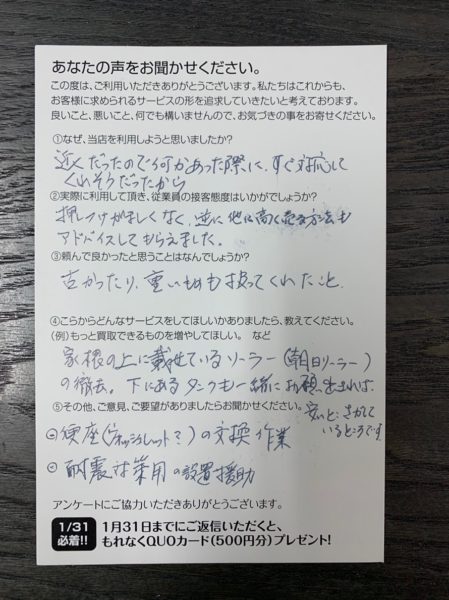 あなたの声をお聞かせください。
この度は、ご利用いただきありがとうございます。私たちはこれからも、
お客様に求められるサービスの形を追求していきたいと考えております。
良いこと、悪いこと、何でも構いませんので、お気づきの事をお寄せください。
①なぜ、当店を利用しようと思いましたか?
近くだったので何かあった際に、すぐ対応して
くれそうだったから
②実際に利用して頂き、従業員の接客態度はいかがでしょうか?
押しつけがましくなく、逆に他に高く売る方法も
アドバイスしてもらえました。
③頼んで良かったと思うことはなんでしょうか?
古かったり、重いものも扱ってくれたこと、
④こらからどんなサービスをしてほしいかありましたら、教えてください。
(例)もっと買取できるものを増やしてほしい。 など
家根の上に載せているソーラー(朝日ソーラー)
の撤去。下にあるタンクも一緒にお願い出来れば
⑤その他、ご意見、ご要望がありましたらお聞かせください。
安いと さがして
いるところです
便座(ウォッシュレット?)の交換作業
耐震 の設置援助
アンケートにご協力いただきありがとうございます。
1/31
必着!!
1月31日までにご返信いただくと、
もれなくQUOカード(500円分)プレゼント!